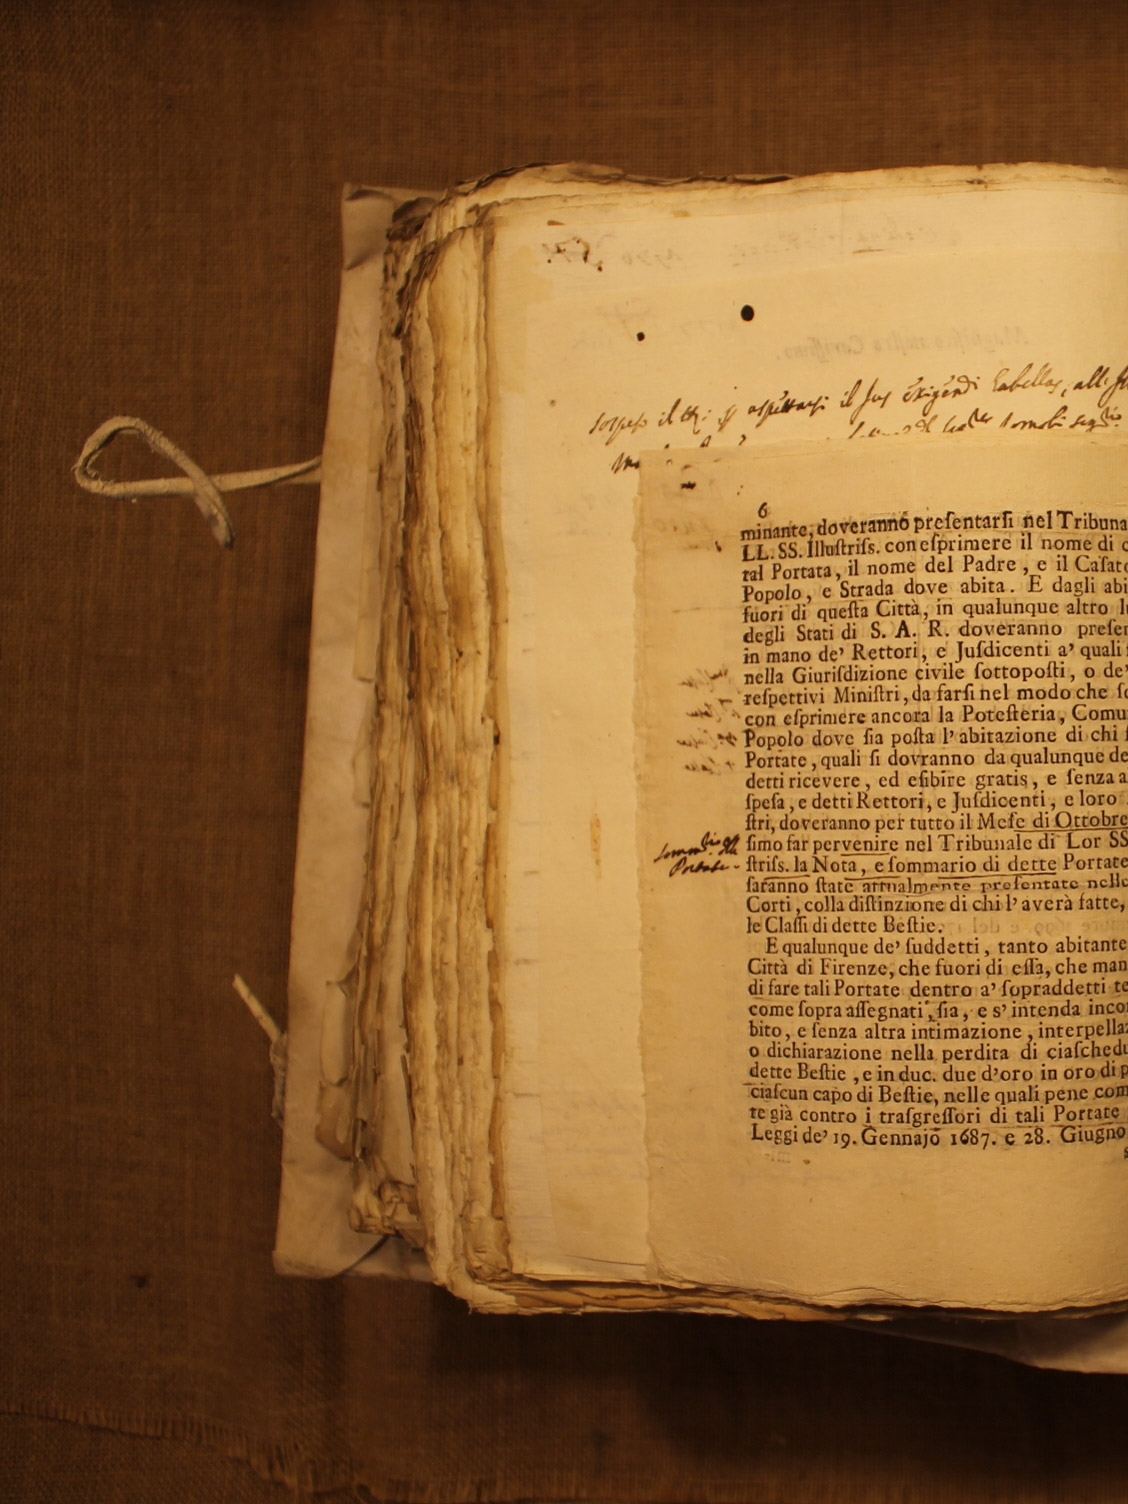 il Jus exigendi Gabellas, all
6
minante, doveranno preſentarſi nel Tribuna
LL. SS. Illuſtriſs. con eſprimere il nome di c
tal Portata, il nome del Padre, e il Caſato
Popolo, e Strada dove abita. E dagli abi
fuori di queſta Città, in qualunque altro lu
degli Stati di S. A. R. doveranno preſen
in mano de' Rettori, e Juſdicenti a' quali
nella Giuriſdizione civile ſottopoſti, o de'
reſpettivi Miniſtri, da farſi nel modo che ſo
con eſprimere ancora la Poteſteria, Comu
Popolo dove ſia poſta l'abitazione di chi f
Portate, quali ſi dovranno da qualunque de
detti ricevere, ed eſibire gratis, e ſenza a
ſpeſa, e detti Rettori, e Juſdicenti, e loro
ſtri, doveranno per tutto il Meſe di Ottobre
ſimo far pervenire nel Tribunale di Lor SS
ſtriſs. la Nota, e ſommario di dette Portate
ſaranno ſtate attualmente preſentate nelle
Corti, colla diſtinzione di chi l'averà fatte,
le Claſſi di dette Beſtie.
E qualunque de' ſuddetti, tanto abitante
Città di Firenze, che fuori di eſſa, che man
di fare tali Portate dentro a' ſopraddetti te
come ſopra aſſegnati, ſia, e s'intenda incor
bito, e ſenza altra intimazione, interpellaz
o dichiarazione nella perdita di ciaſchedu
dette Beſtie, e in duc. due d'oro in oro di p
ciaſcun capo di Beſtie, nelle quali pene com
te già contro i traſgreſſori di tali Portate
Leggi de' 19. Gennajo 1687. e 28. Giugno
Portate